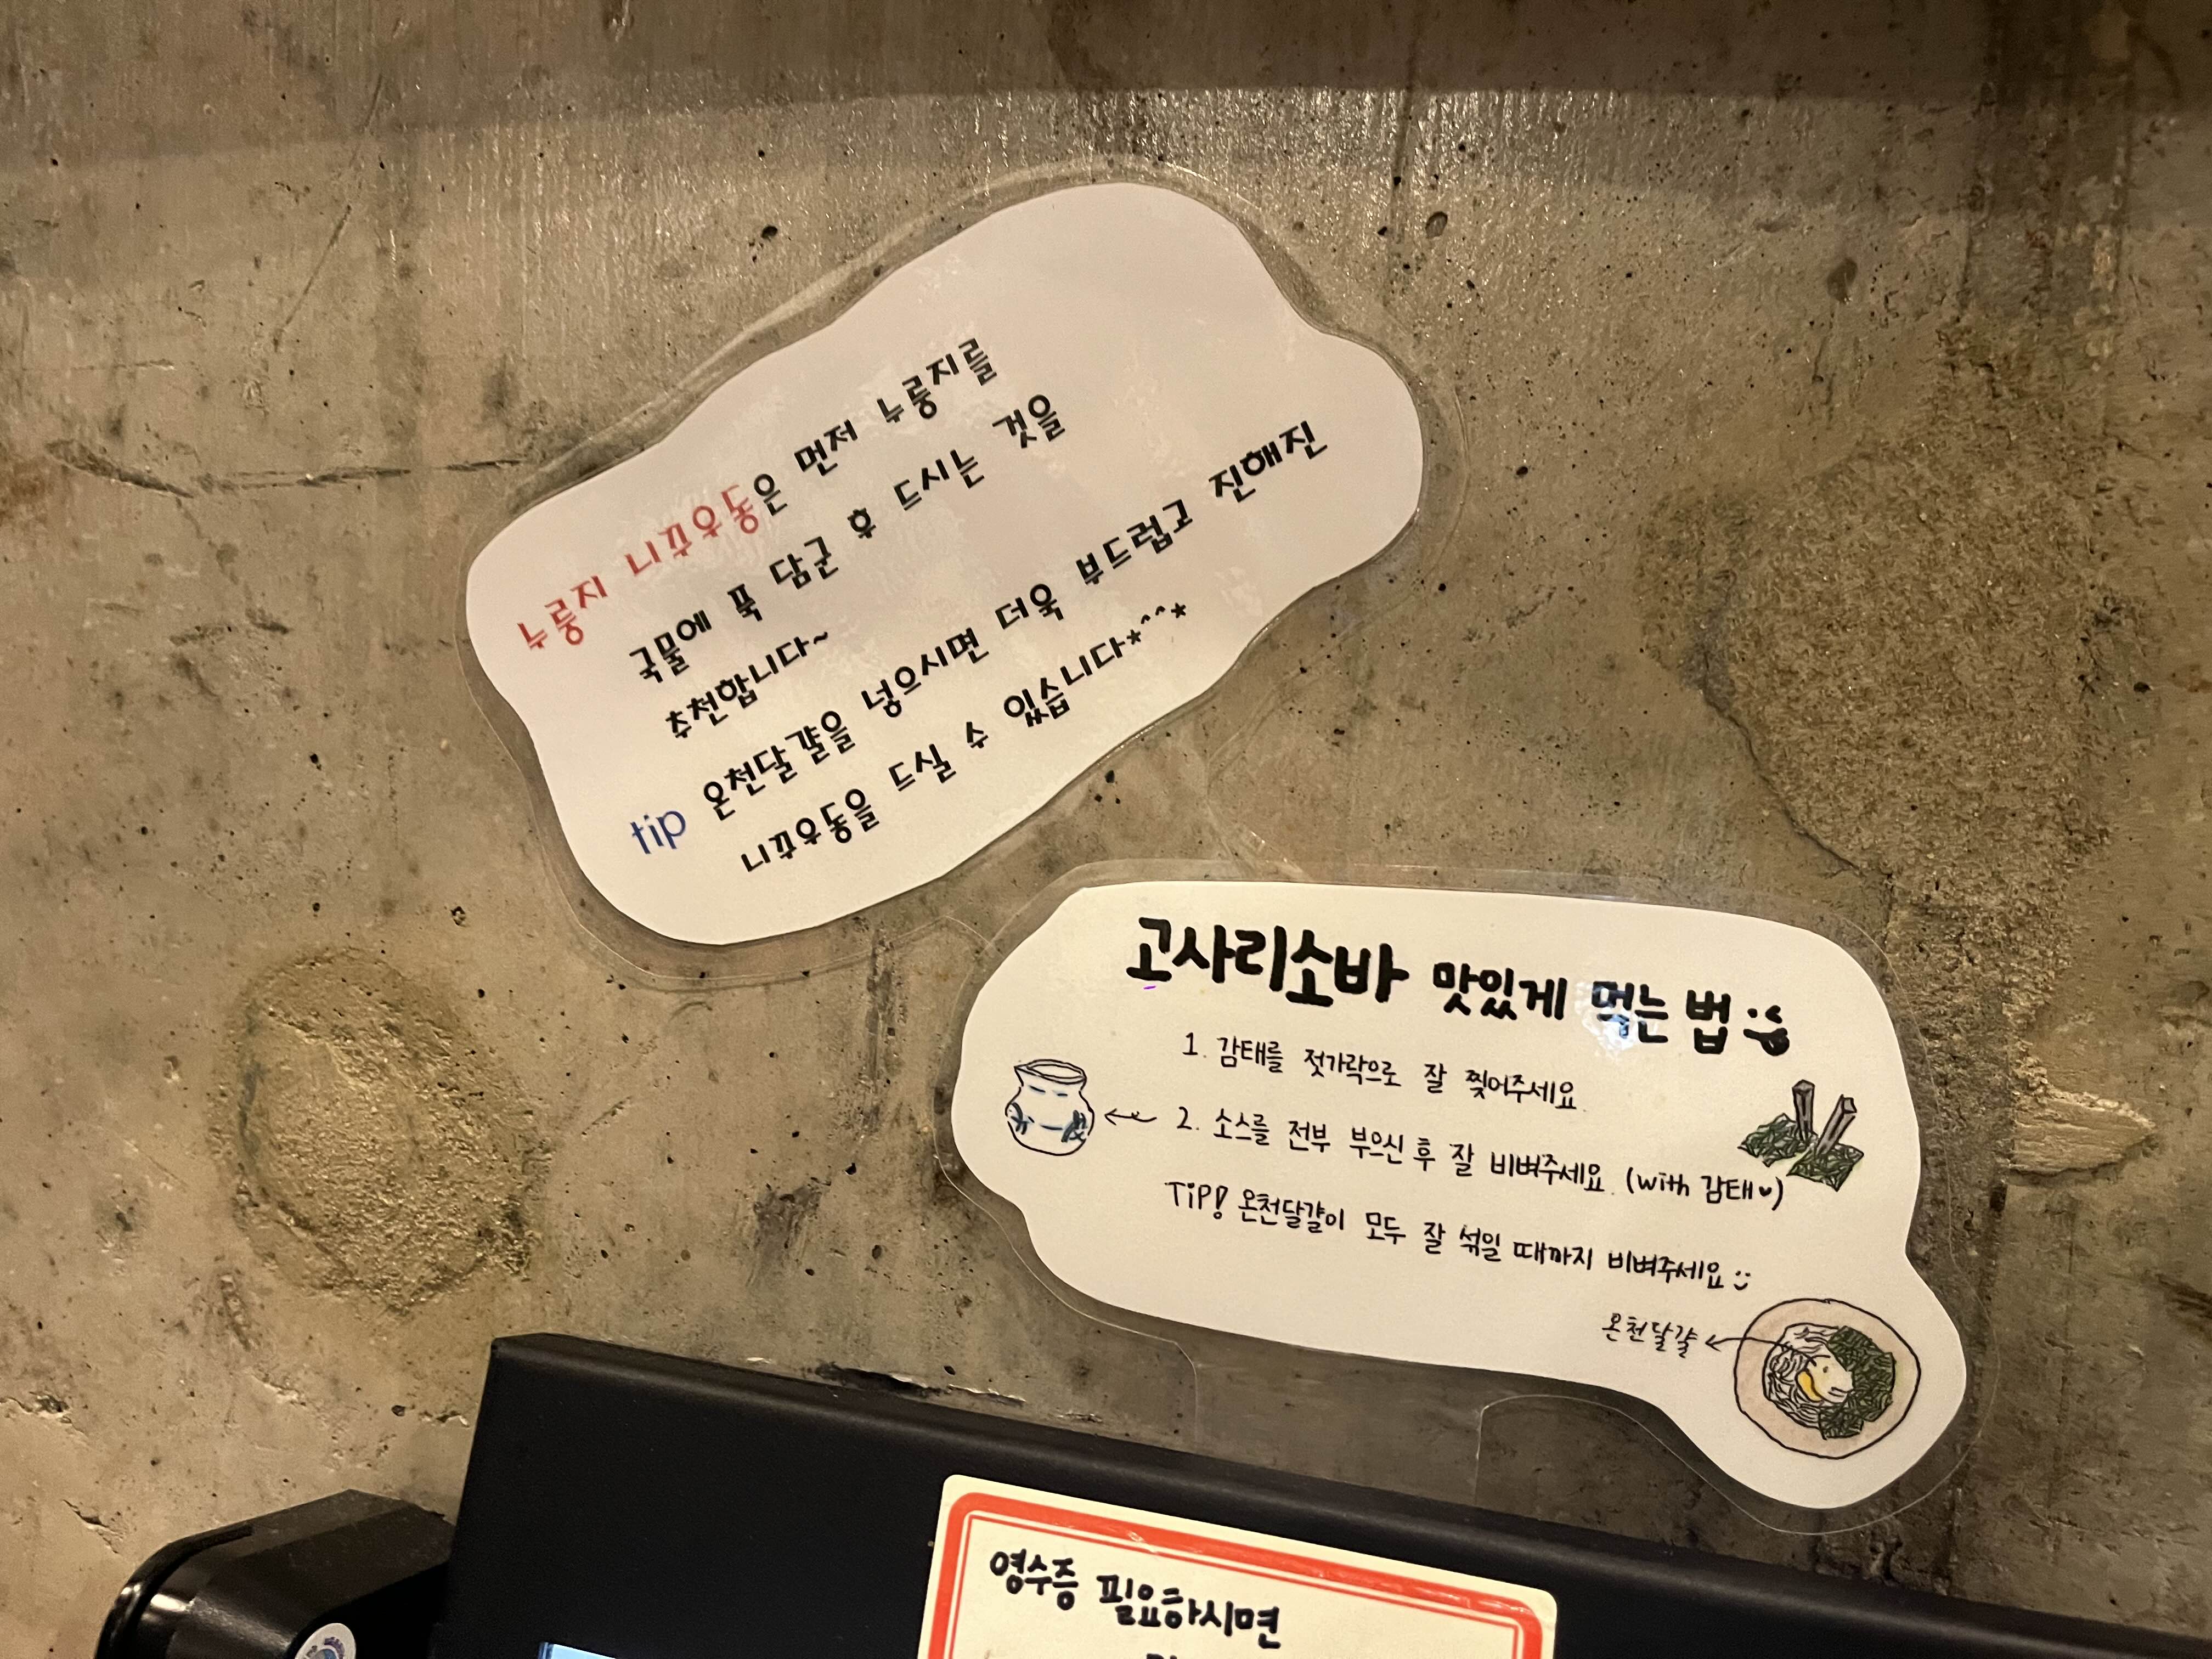 누룽지 니꾸우동은 먼저 누룽지를
국물에 푹 담군 후 드시는 것을
추천합니다~
tip 온천달걀을 넣으시면 더욱 부드럽고 진해진
니꾸우동을 드실 수 있습니다*^^*
고사리소바 맛있게 먹는 법
1. 감태를 젓가락으로 잘 찢어주세요.
2. 소스를 전부 부으신 후 잘 비벼주세요. (with 감태♥)
TiP! 온천달걀이 모두 잘 섞일 때까지 비벼주세요
온천달걀
영수증 필요하시면